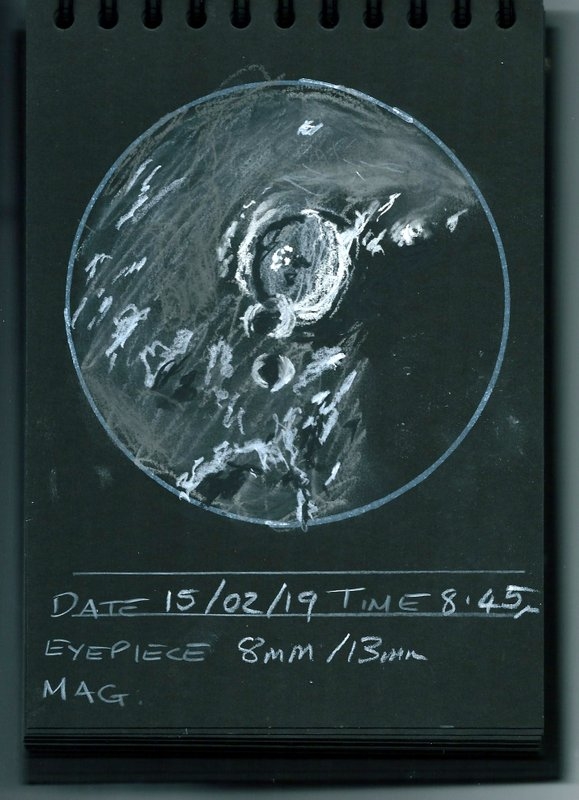 DATE 15/02/19 TIME 8.45
EYEPIECE 8mm/13mm
MAG.